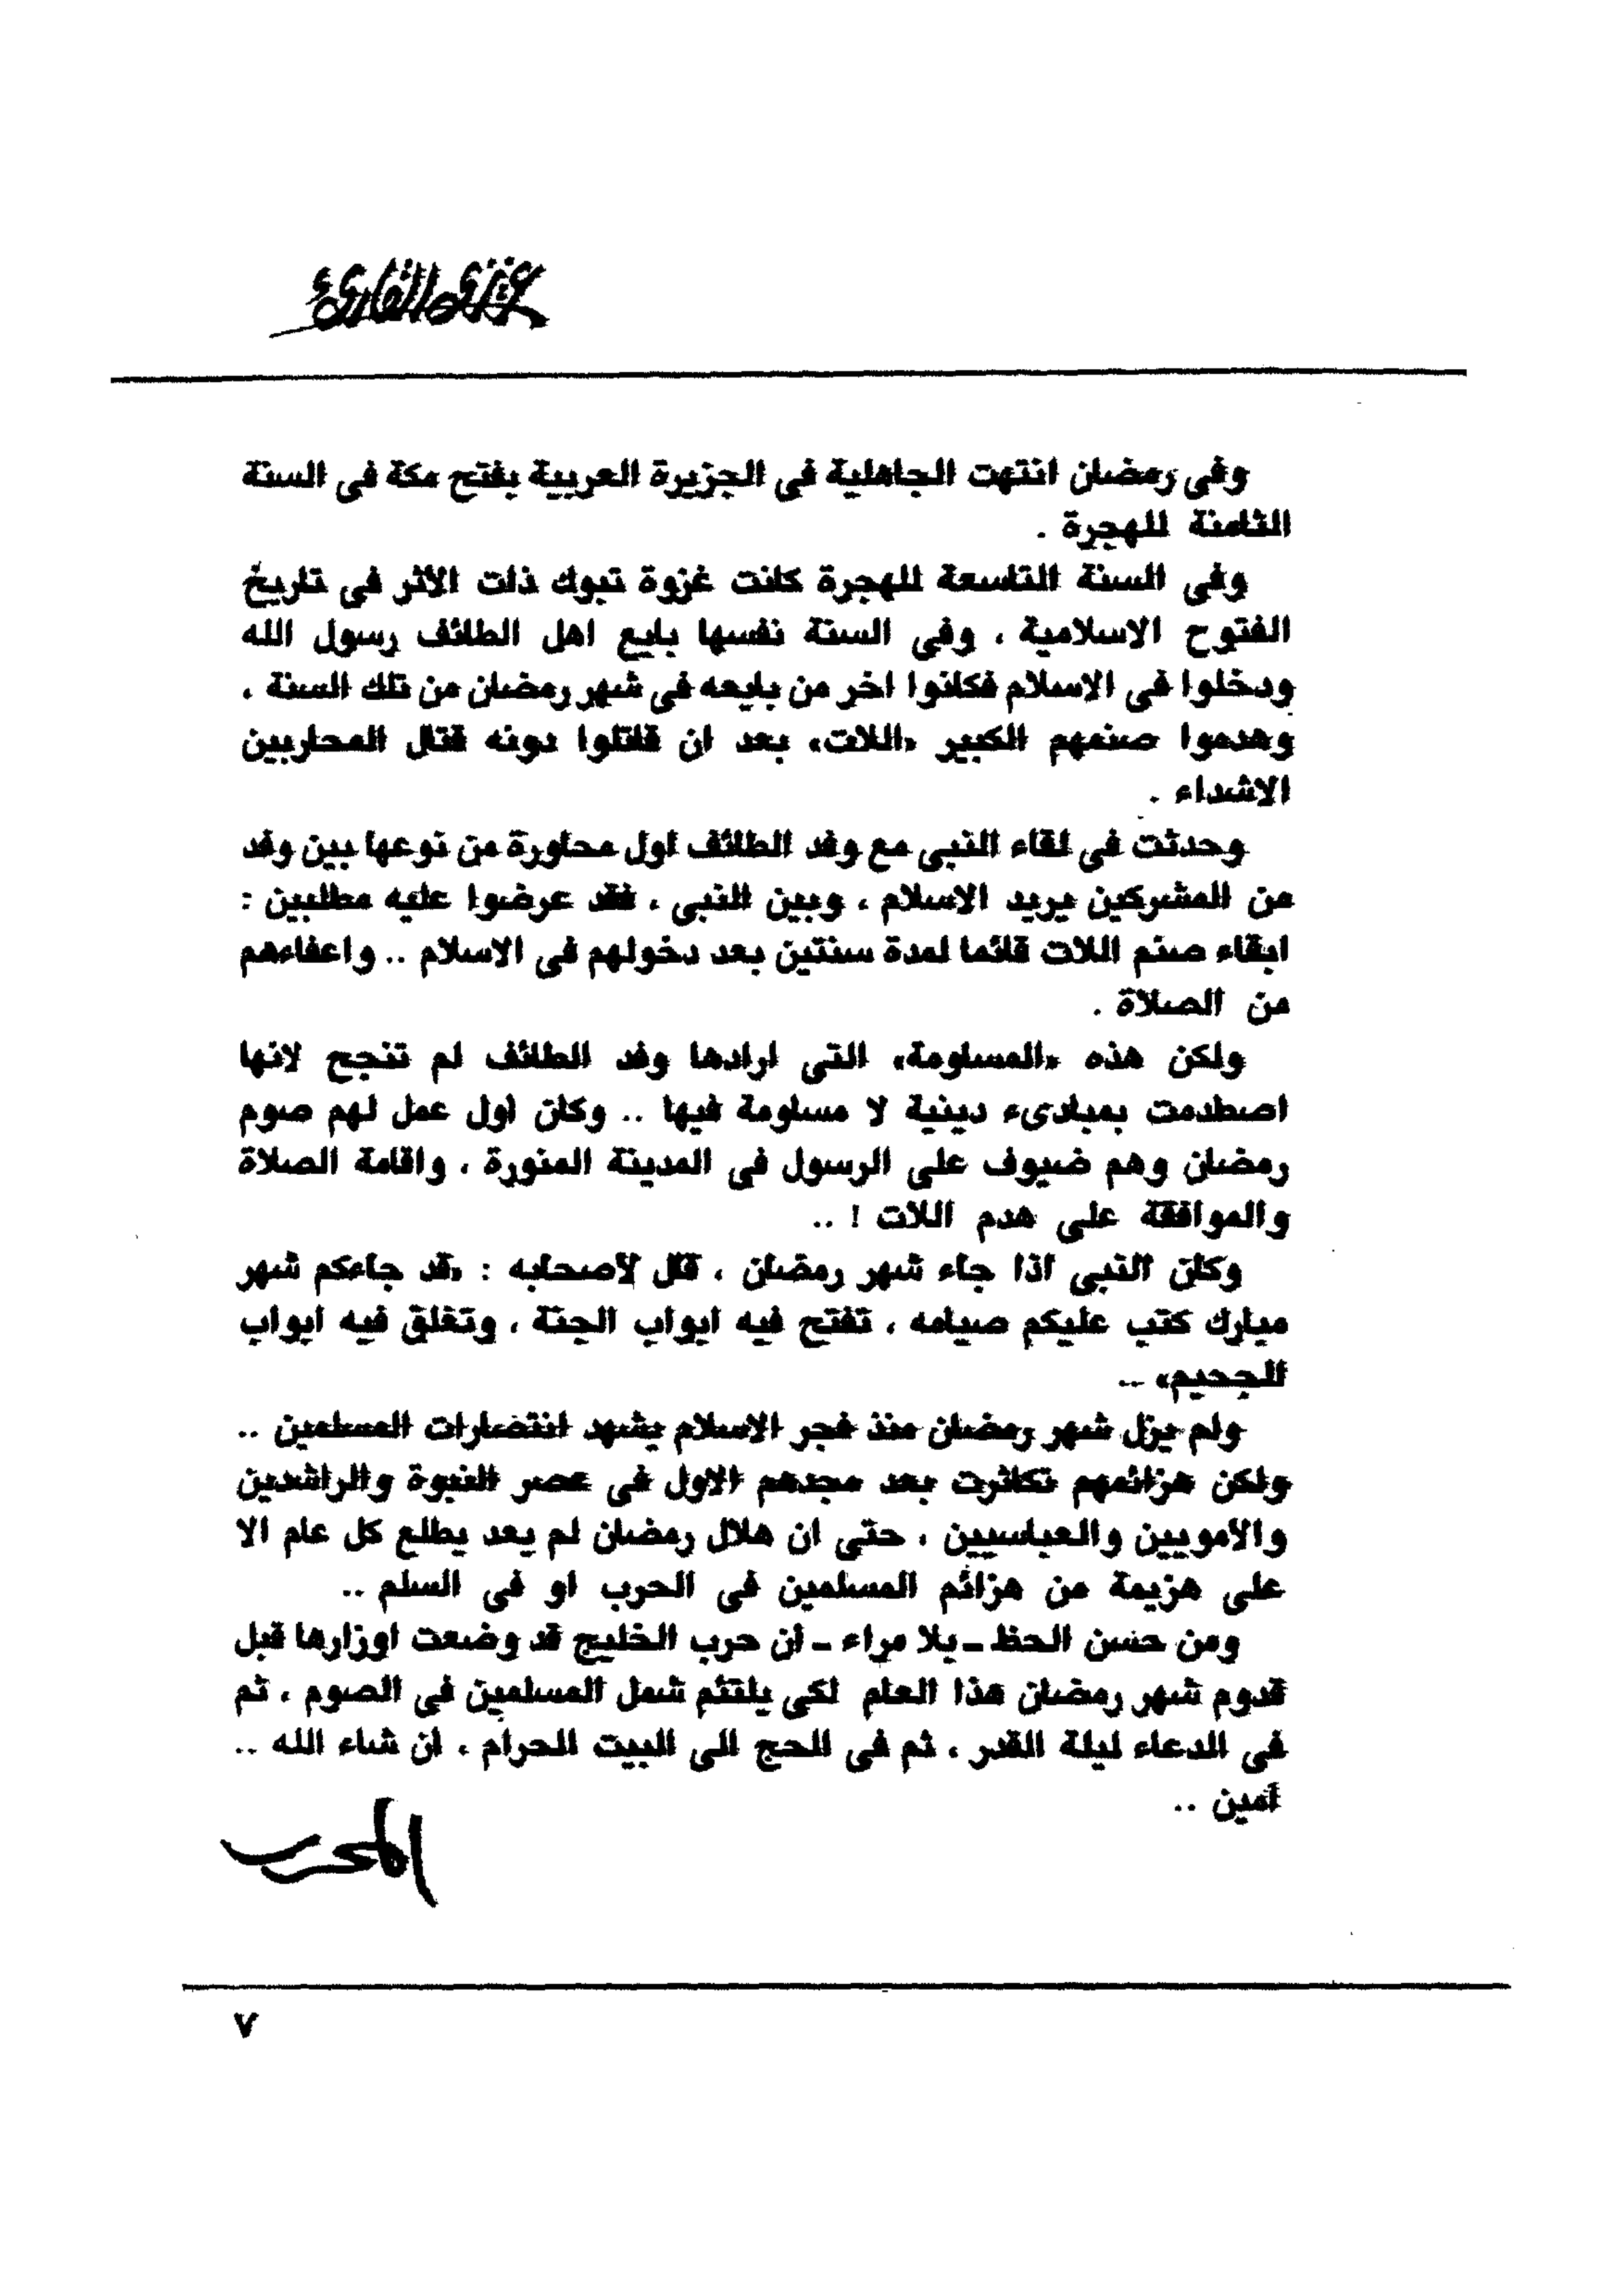 عزيزى القارىء
وفى رمضان انتهت الجاهلية فى الجزيرة العربية بفتح مكة فى السنة
الثامنة للهجرة .
وفى السنة التاسعة للهجرة كانت غزوة تبوك ذات الأثر فى تاريخ
الفتوح الاسلامية ، وفى السنة نفسها بايع اهل الطائف رسول الله
ودخلوا فى الاسلام فكانوا اخر من بايعه فى شهر رمضان من تلك السنة ،
وهدموا صنمهم الكبير «اللات» بعد ان قاتلوا دونه قتال المحاربين
الاشداء .
وحدثت فى لقاء النبى مع وفد الطائف اول محاورة من نوعها بين وفد
من المشركين يريد الاسلام ، وبين النبى ، فقد عرضوا عليه مطلبين :
ابقاء صنم اللات قائما لمدة سنتين بعد دخولهم فى الاسلام .. واعفاءهم
من الصلاة .
ولكن هذه «المساومة» التى ارادها وفد الطائف لم تنجح لانها
اصطدمت بمبادىء دينية لا مساومة فيها .. وكان اول عمل لهم صوم
رمضان وهم ضيوف على الرسول فى المدينة المنورة ، واقامة الصلاة
والموافقة على هدم اللات ! ..
وكان النبى اذا جاء شهر رمضان ، قال لأصحابه : «قد جاءكم شهر
مبارك كتب عليكم صيامه ، تفتح فيه ابواب الجنة ، وتغلق فيه ابواب
الجحيم» ..
ولم يزل شهر رمضان منذ فجر الاسلام يشهد انتصارات المسلمين ..
ولكن هزائمهم تكاثرت بعد مجدهم الاول فى عصر النبوة والراشدين
والأمويين والعباسيين ، حتى ان هلال رمضان لم يعد يطلع كل عام الا
على هزيمة من هزائم المسلمين فى الحرب او فى السلم ..
ومن حسن الحظ ـ بلا مراء ـ ان حرب الخليج قد وضعت اوزارها قبل
قدوم شهر رمضان هذا العام لكى يلتئم شمل المسلمين فى الصوم ، ثم
فى الدعاء ليلة القدر ، ثم فى الحج الى البيت الحرام ، ان شاء الله ..
آمين ..
المحرر
٧